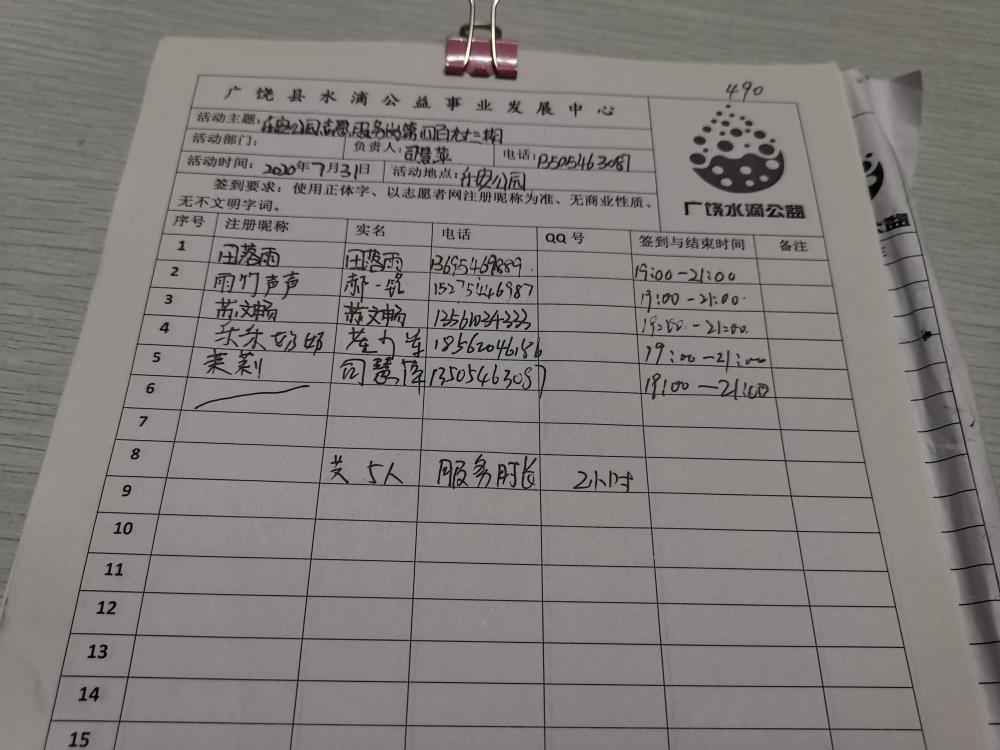 490
广饶县水滴公益事业发展中心
活动主题：乐安公园志愿服务岗第四百九十二期
活动部门： 负责人：司慧萍 电话：13505463087
活动时间：2020年7月31日 活动地点：乐安公园
签到要求：使用正体字、以志愿者网注册昵称为准、无商业性质、
无不文明字词。
广饶水滴公益
序号 注册昵称 实名 电话 QQ号 签到与结束时间 备注
1 田落雨 田落雨 13695469889 19:00-21:00
2 雨竹声声 郝 15275446987 19:00-21:00
3 苏文畅 苏文畅 13561034333 19:00-21:00
4 乐乐奶奶 18562046186 19:00-21:00
5 茉莉 司慧萍 13505463087 19:00-21:00
6
7
8 共5人 服务时长 2小时
9
10
11
12
13
14
15